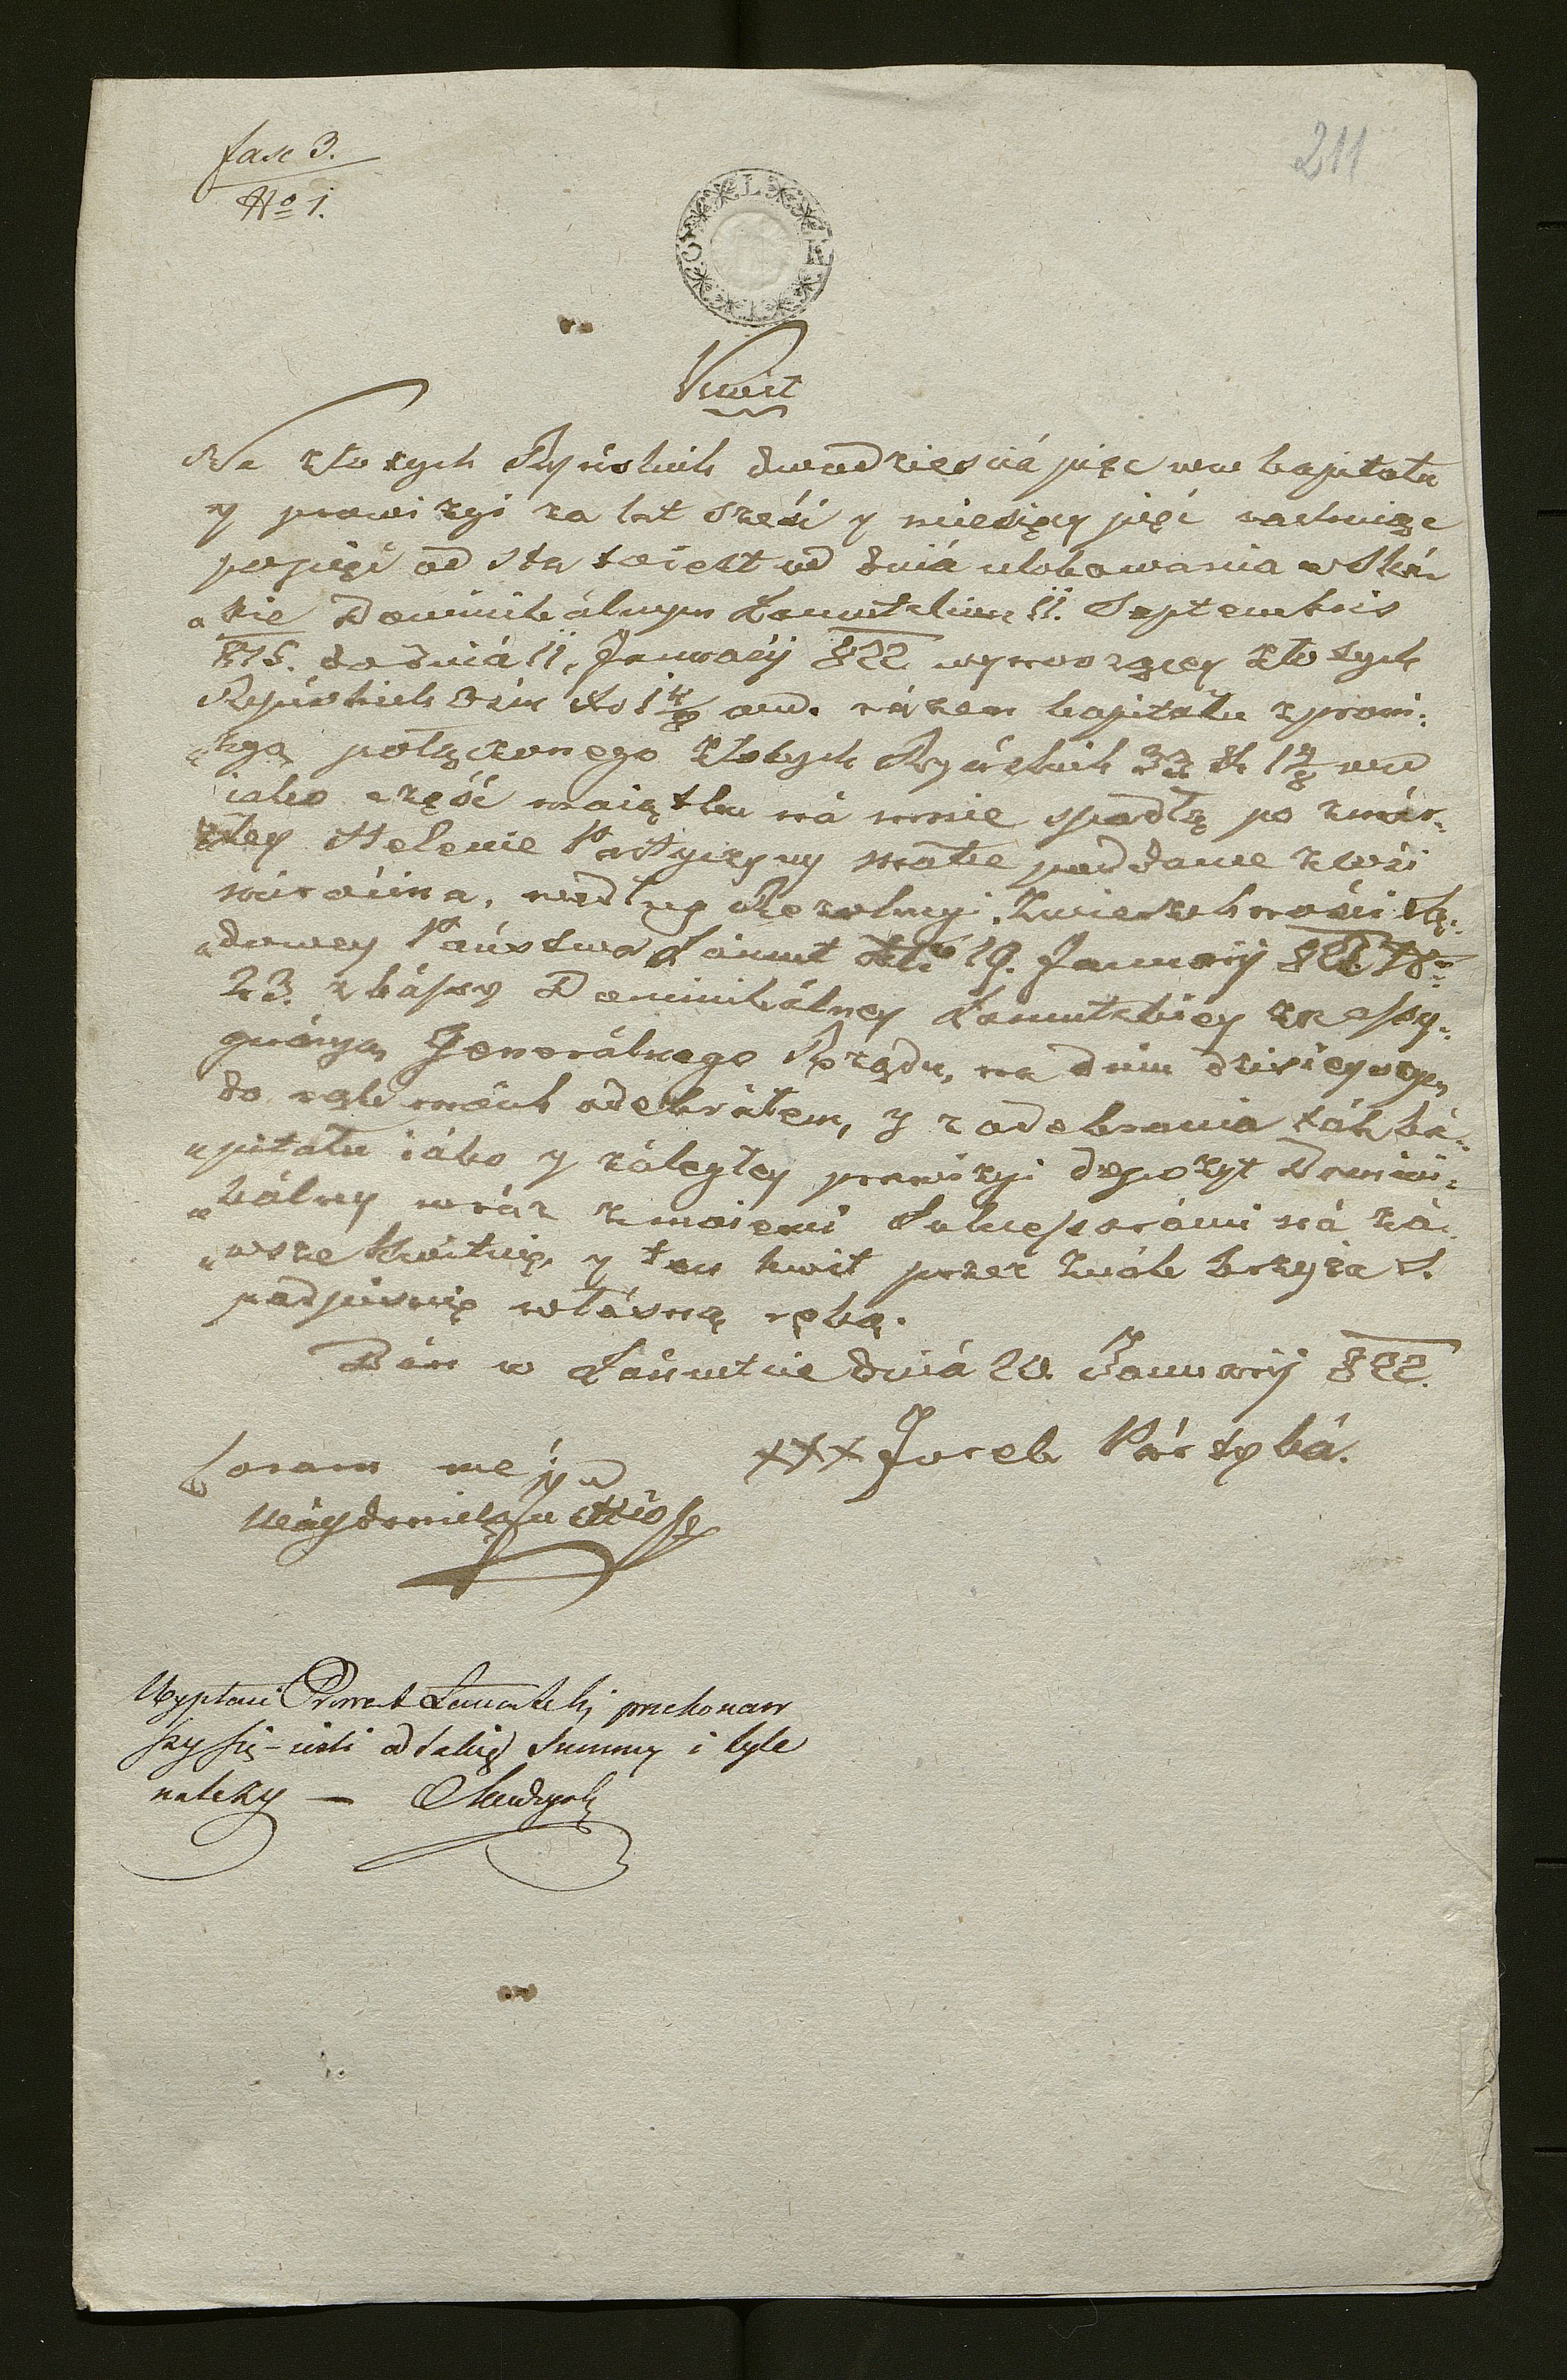 fasc 3.
No 1.
211
L K C
Kwit
Na złotych Ryńskich dwadzieścia pięc ww kapitału
y prowizyi za lat sześć y miesięcy pięć rachuiąc
po pięć od sta to iest od dniá ulokowania w Skár
„bie Dominikálnym Łancutskim 11. Septembris
815. do dniá 11. Januarij 822 wynoszącey złotych
Ryńskich ośm xr 1 4/8 ww. rázem kapitału z prowi„
„zyą połączonego złotych Ryńskich 33 xr 1 4/8 ww
iako część maiątku ná mnie spadłą po zmár„
łey Helenie Partyczyny matce poddance z wsi
według Rezolucyi Zwierzchności Są„
„dowey Państwa Łáncut dtto 19. Januarij 822 No
23. z kássy Dominikálney Łancutskiey za assy„
gnácyą Generálnego Rządu, na dniu dzisieyszym
do rąk moich odebráłem, y z odebrania ták ká„
„pitału iáko y záległey prowizyi depozyt Domini„
„kálny wráz z moiemi Sukcessorámi ná zá„
„wsze kwituię, y ten kwit przez znák krzyża S.
podpisuię włásną ręką.
Dán w Łáncutcie dniá 20. Januarij 822.
Coram me
+++ Jozeb Pártyká.
Wypłaci Prowent Łancutski przekonaw
szy się - iesli od takiey Summy i tyle
należy —